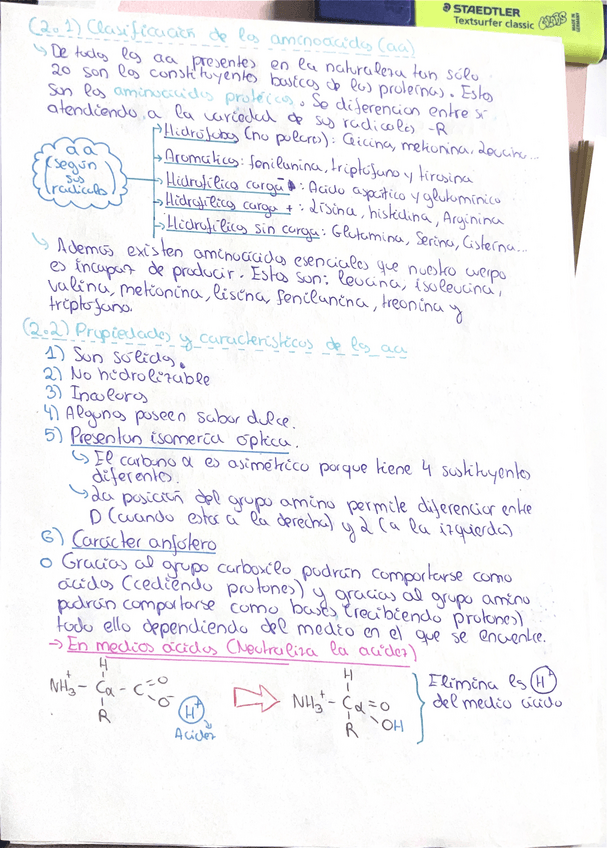 STAEDTLER
Textsurfer classic
(2.1) Clasificación de los aminoácidos (aa)
↳ De todos los aa presentes en la naturaleza tan sólo
20 son los constituyentes básicos de las proteínas. Estos
son los aminoácidos protéicos. Se diferencian entre sí
atendiendo a la variedad de sus radicales -R
aa
según
sus
radicales
→ Hidrófobos (no polares): Glicina, metionina, Leucina...
→ Aromáticos: fenilanina, triptófano y tirosina
→ Hidrofílico carga - : Ácido aspártico y glutamínico
→ Hidrofílico carga + : Lisina, histidina, Arginina
→ Hidrofílico sin carga: Glutamina, Serina, Cisteína...
↳ Además existen aminoácidos esenciales que nuestro cuerpo
es incapaz de producir. Estos son: leucina, isoleucina,
valina, metionina, liscina, fenilanina, treonina y
triptófano.
(2.2) Propiedades y características de los aa
1) Son sólidos.
2) No hidrolizable
3) Incoloros
4) Algunos poseen sabor dulce.
5) Presentan isomería óptica.
↳ El carbono α es asimétrico porque tiene 4 sustituyentes
diferentes.
↳ La posición del grupo amino permite diferenciar entre
D (cuando está a la derecha) y L (a la izquierda)
6) Carácter anfótero
o Gracias al grupo carboxilo podrán comportarse como
ácidos (cediendo protones) y gracias al grupo amino
podrán comportarse como bases (recibiendo protones)
todo ello dependiendo del medio en el que se encuentre.
→ En medios ácidos (Neutraliza la acidez)
H H
NH₃⁺ - Cα - C = O O⁻ NH₃⁺ - Cα = O OH
R R
H⁺
Acidez
Elimina los H⁺
del medio ácido